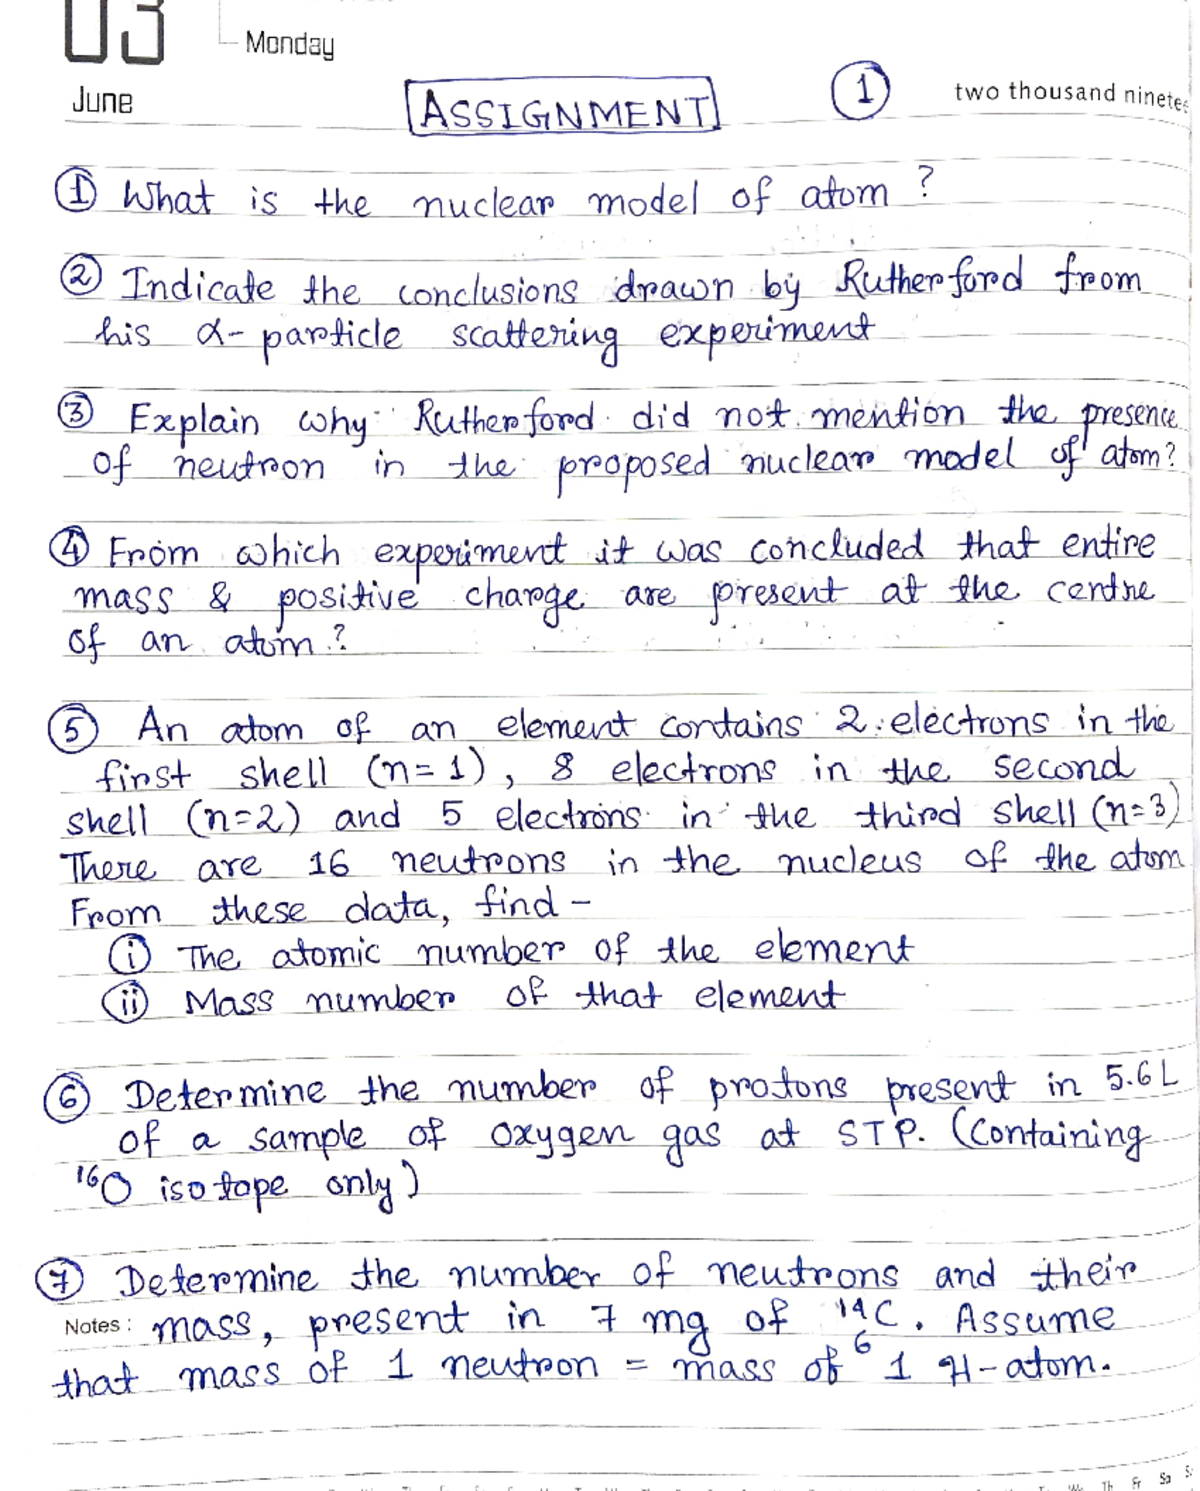 03
Monday
June
ASSIGNMENT
1
two thousand ninetee
① What is the nuclear model of atom ?
② Indicate the conclusions drawn by Rutherford from
his α-particle scattering experiment
③ Explain why Rutherford did not mention the presence
of neutron in the proposed nuclear model of atom?
④ From which experiment it was concluded that entire
mass & positive charge are present at the centre
of an atom ?
⑤ An atom of an element contains 2 electrons in the
first shell (n=1), 8 electrons in the second
shell (n=2) and 5 electrons in the third shell (n=3)
There are 16 neutrons in the nucleus of the atom
From these data, find -
ⓘ The atomic number of the element
ⓘⓘ Mass number of that element
⑥ Determine the number of protons present in 5.6 L
of a sample of oxygen gas at STP. (Containing
¹⁶O isotope only)
⑦ Determine the number of neutrons and their
Notes : mass, present in 7 mg of ¹⁴₆C. Assume
that mass of 1 neutron = mass of 1 H-atom.
Th Fr Sa